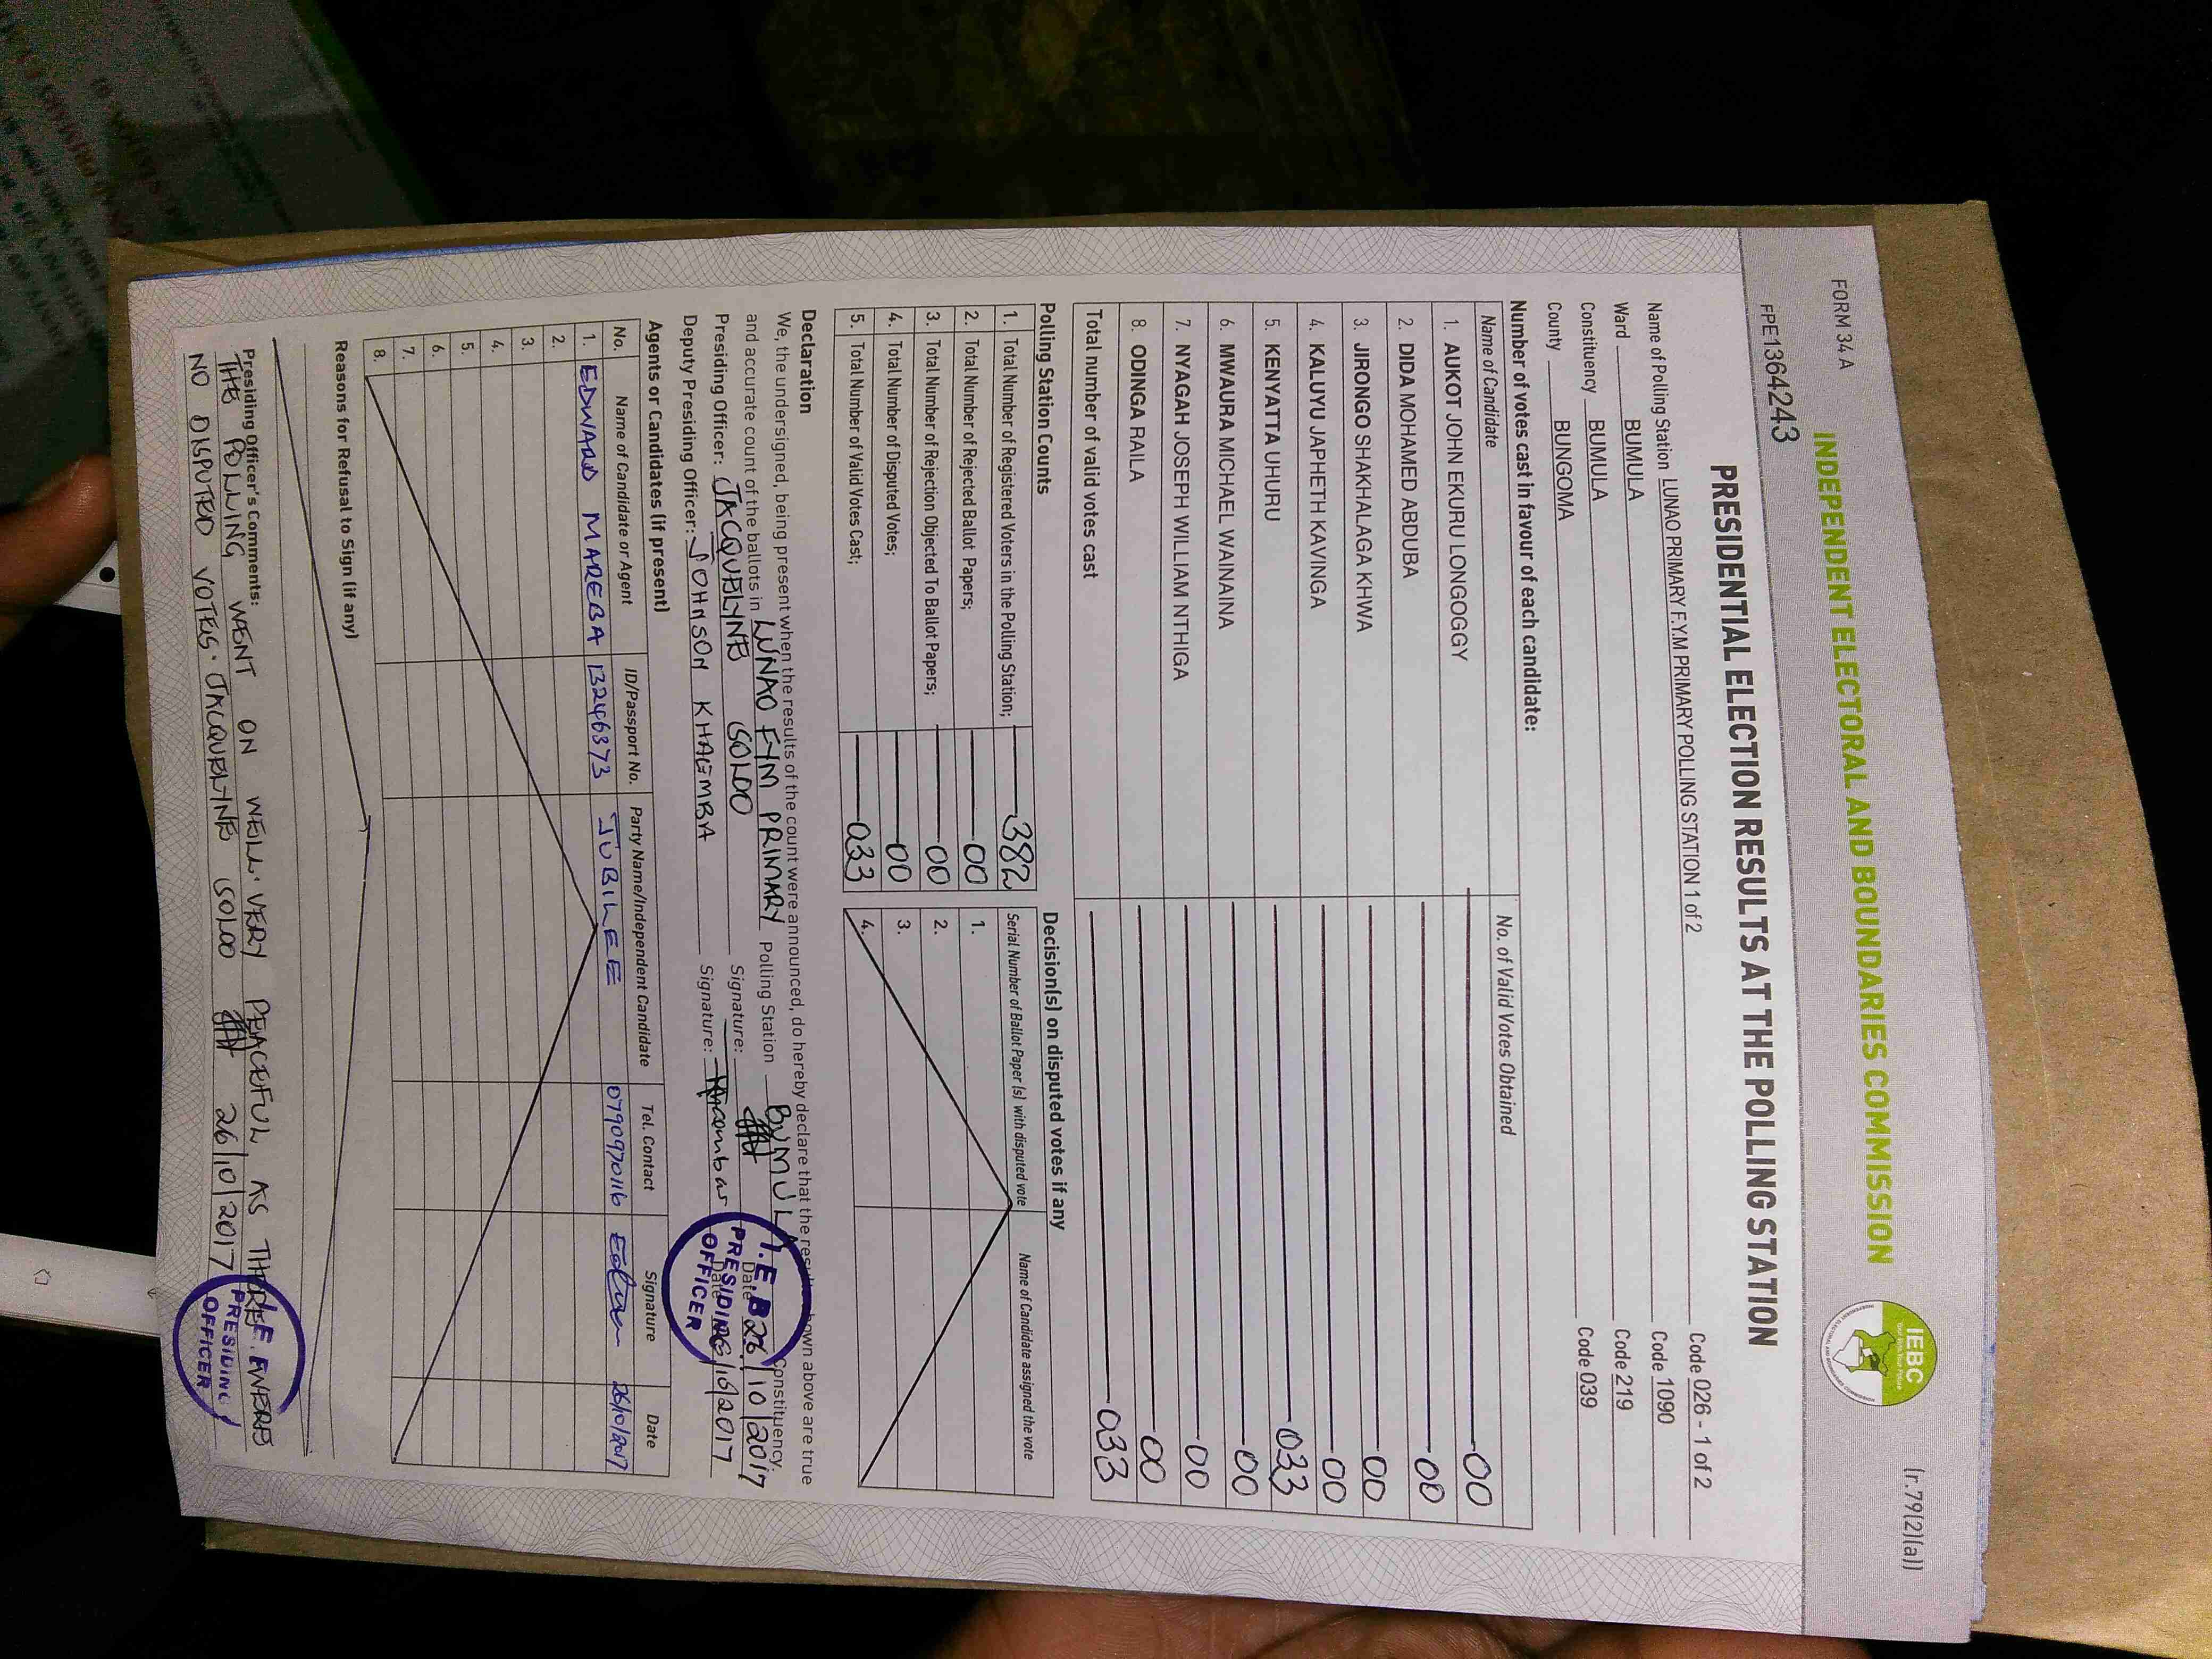 FORM 34 A
(r.79(2)(a))
INDEPENDENT ELECTORAL AND BOUNDARIES COMMISSION
IEBC
FPE1364243
PRESIDENTIAL ELECTION RESULTS AT THE POLLING STATION
Name of Polling Station LUNAO PRIMARY F.Y.M PRIMARY POLLING STATION 1 of 2 Code 026 - 1 of 2
Ward BUMULA Code 1090
Constituency BUMULA Code 219
County BUNGOMA Code 039
Number of votes cast in favour of each candidate:
Name of Candidate No. of Valid Votes Obtained
1. AUKOT JOHN EKURU LONGOGGY 00
2. DIDA MOHAMED ABDUBA 00
3. JIRONGO SHAKHALAGA KHWA 00
4. KALUYU JAPHETH KAVINGA 00
5. KENYATTA UHURU 033
6. MWAURA MICHAEL WAINAINA 00
7. NYAGAH JOSEPH WILLIAM NTHIGA 00
8. ODINGA RAILA 00
Total number of valid votes cast 033
Polling Station Counts
1. Total Number of Registered Voters in the Polling Station; 382
2. Total Number of Rejected Ballot Papers; 00
3. Total Number of Rejection Objected To Ballot Papers; 00
4. Total Number of Disputed Votes; 00
5. Total Number of Valid Votes Cast; 033
Decision(s) on disputed votes if any
Serial Number of Ballot Paper (s) with disputed vote Name of Candidate assigned the vote
1.
2.
3.
4.
Declaration
We, the undersigned, being present when the results of the count were announced, do hereby declare that the results shown above are true
and accurate count of the ballots in LUNAO FYM PRIMARY Polling Station BUMULA Constituency.
Presiding Officer: JACQUELYNE SOLDO Signature: Date 26/10/2017
Deputy Presiding Officer: JOHNSON KHAEMBA Signature: Date 26/10/2017
PRESIDING
OFFICER
Agents or Candidates (if present)
No. Name of Candidate or Agent ID/Passport No. Party Name/Independent Candidate Tel. Contact Signature Date
1. EDWARD MAREBA 13246373 JUBILEE 0790970116 26/10/2017
2.
3.
4.
5.
6.
7.
8.
Reasons for Refusal to Sign (if any)
Presiding Officer's Comments:
THE POLLING WENT ON WELL. VERY PEACEFUL AS THERE WERE
NO DISPUTED VOTES. JACQUELYNE SOLDO 26/10/2017
PRESIDING
OFFICER